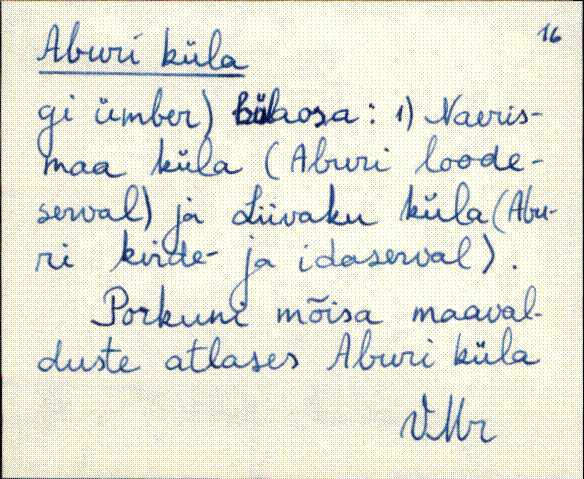 16
Aburi küla
gi ümber) külaosa: 1) Naeris-
maa küla (Aburi loode-
serval) ja Liivaku küla (Abu-
ri kirde- ja idaserval).
Porkuni mõisa maaval-
duste atlases Aburi küla
VMr